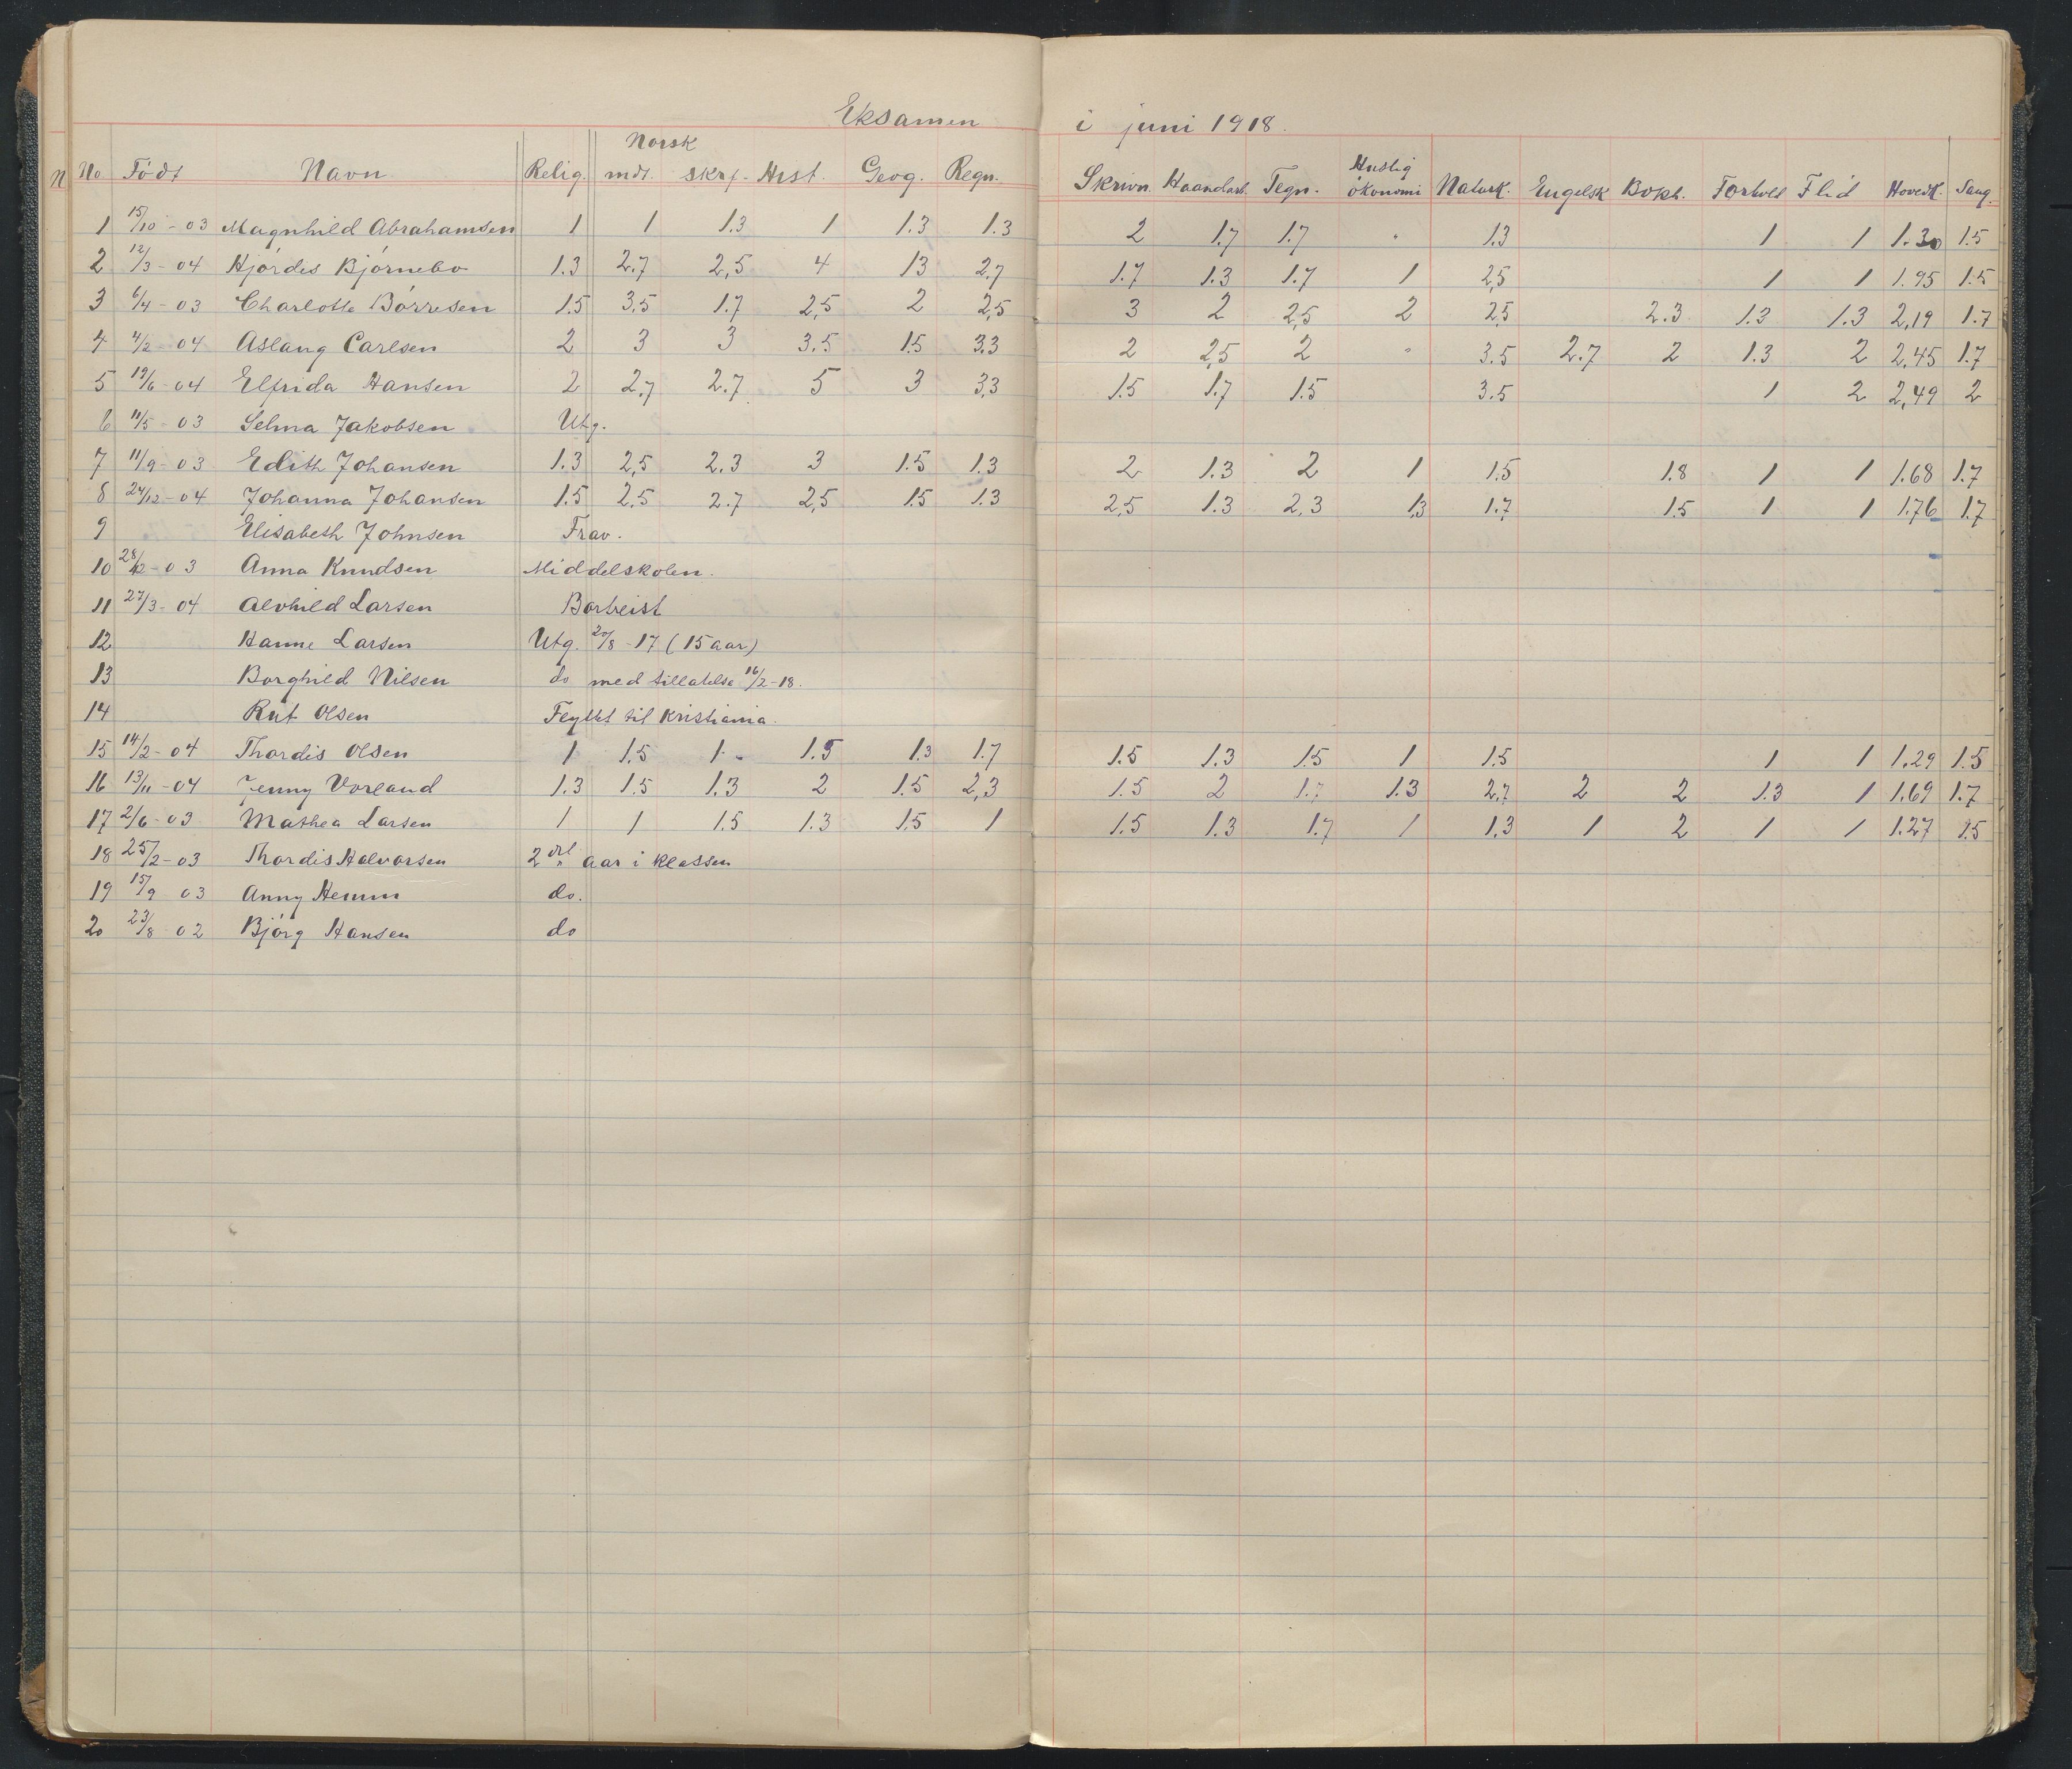 Eksamen i juni 1918.
Norsk Huslig
No Født Navn Relig. mdt. skrf. Hist. Geog. Regn. Skrivn. Haandarb. Tegn. økonomi Naturk. Engelsk Bokh. Forhold Flid Hovedk. Sang.
1 15/10-03 Magnhild Abrahamsen 1 1 1.3 1 1.3 1.3 2 1.7 1.7 " 1.3 1 1 1.30 1.5
2 12/3-04 Hjørdis Bjørnebo 1.3 2.7 2,5 4 1.3 2.7 1.7 1.3 1.7 1 2,5 1 1 1.95 1.5
3 6/4-03 Charlotte Børresen 1.5 3.5 1.7 2,5 2 2,5 3 2 2,5 2 2,5 2.3 1.3 1.3 2,19 1.7
4 4/2-04 Aslaug Carlsen 2 3 3 3.5 1.5 3.3 2 2,5 2 " 3.5 2.7 2 1.3 2 2,45 1.7
5 19/6-04 Elfrida Hansen 2 2.7 2.7 5 3 3,3 1.5 1.7 1.5 3.5 1 2 2,49 2
6 11/5-03 Selma Jakobsen Utg.
7 11/9-03 Edith Johansen 1.3 2,5 2.3 3 1.5 1.3 2 1.3 2 1 1.5 1.8 1 1 1.68 1.7
8 24/12-04 Johanna Johansen 1.5 2.5 2.7 2,5 1.5 1.3 2,5 1.3 2.3 1,3 1.7 1.5 1 1 1.76 1.7
9 Elisabeth Johnsen Frav.
10 28/12-03 Anna Knudsen Middelskolen.
11 27/3-04 Alvhild Larsen Bortreist
12 Hanne Larsen Utg. 20/8-17 (15 aar)
13 Borghild Nilsen do med tillatelse 16/2-18.
14 Rut Olsen Flyttet til Kristiania.
15 14/2-04 Thordis Olsen 1 1.5 1- 1.5 1.3 1.7 1.5 1.3 1.5 1 1.5 1 1 1.29 1.5
16 13/11-04 Jenny Vorland 1.3 1.5 1.3 2 1.5 2,3 1.5 2 1.7 1.3 2,7 2 2 1.3 1 1.69 1.7
17 2/6-03 Mathea Larsen 1 1 1.5 1.3 1.5 1 1.5 1.3 1.7 1 1,3 1 2 1 1 1.27 1.5
18 25/2-03 Thordis Halvorsen 2det aar i klassen
19 15/9-03 Anny Hemm do.
20 23/8-02 Bjørg Hansen do